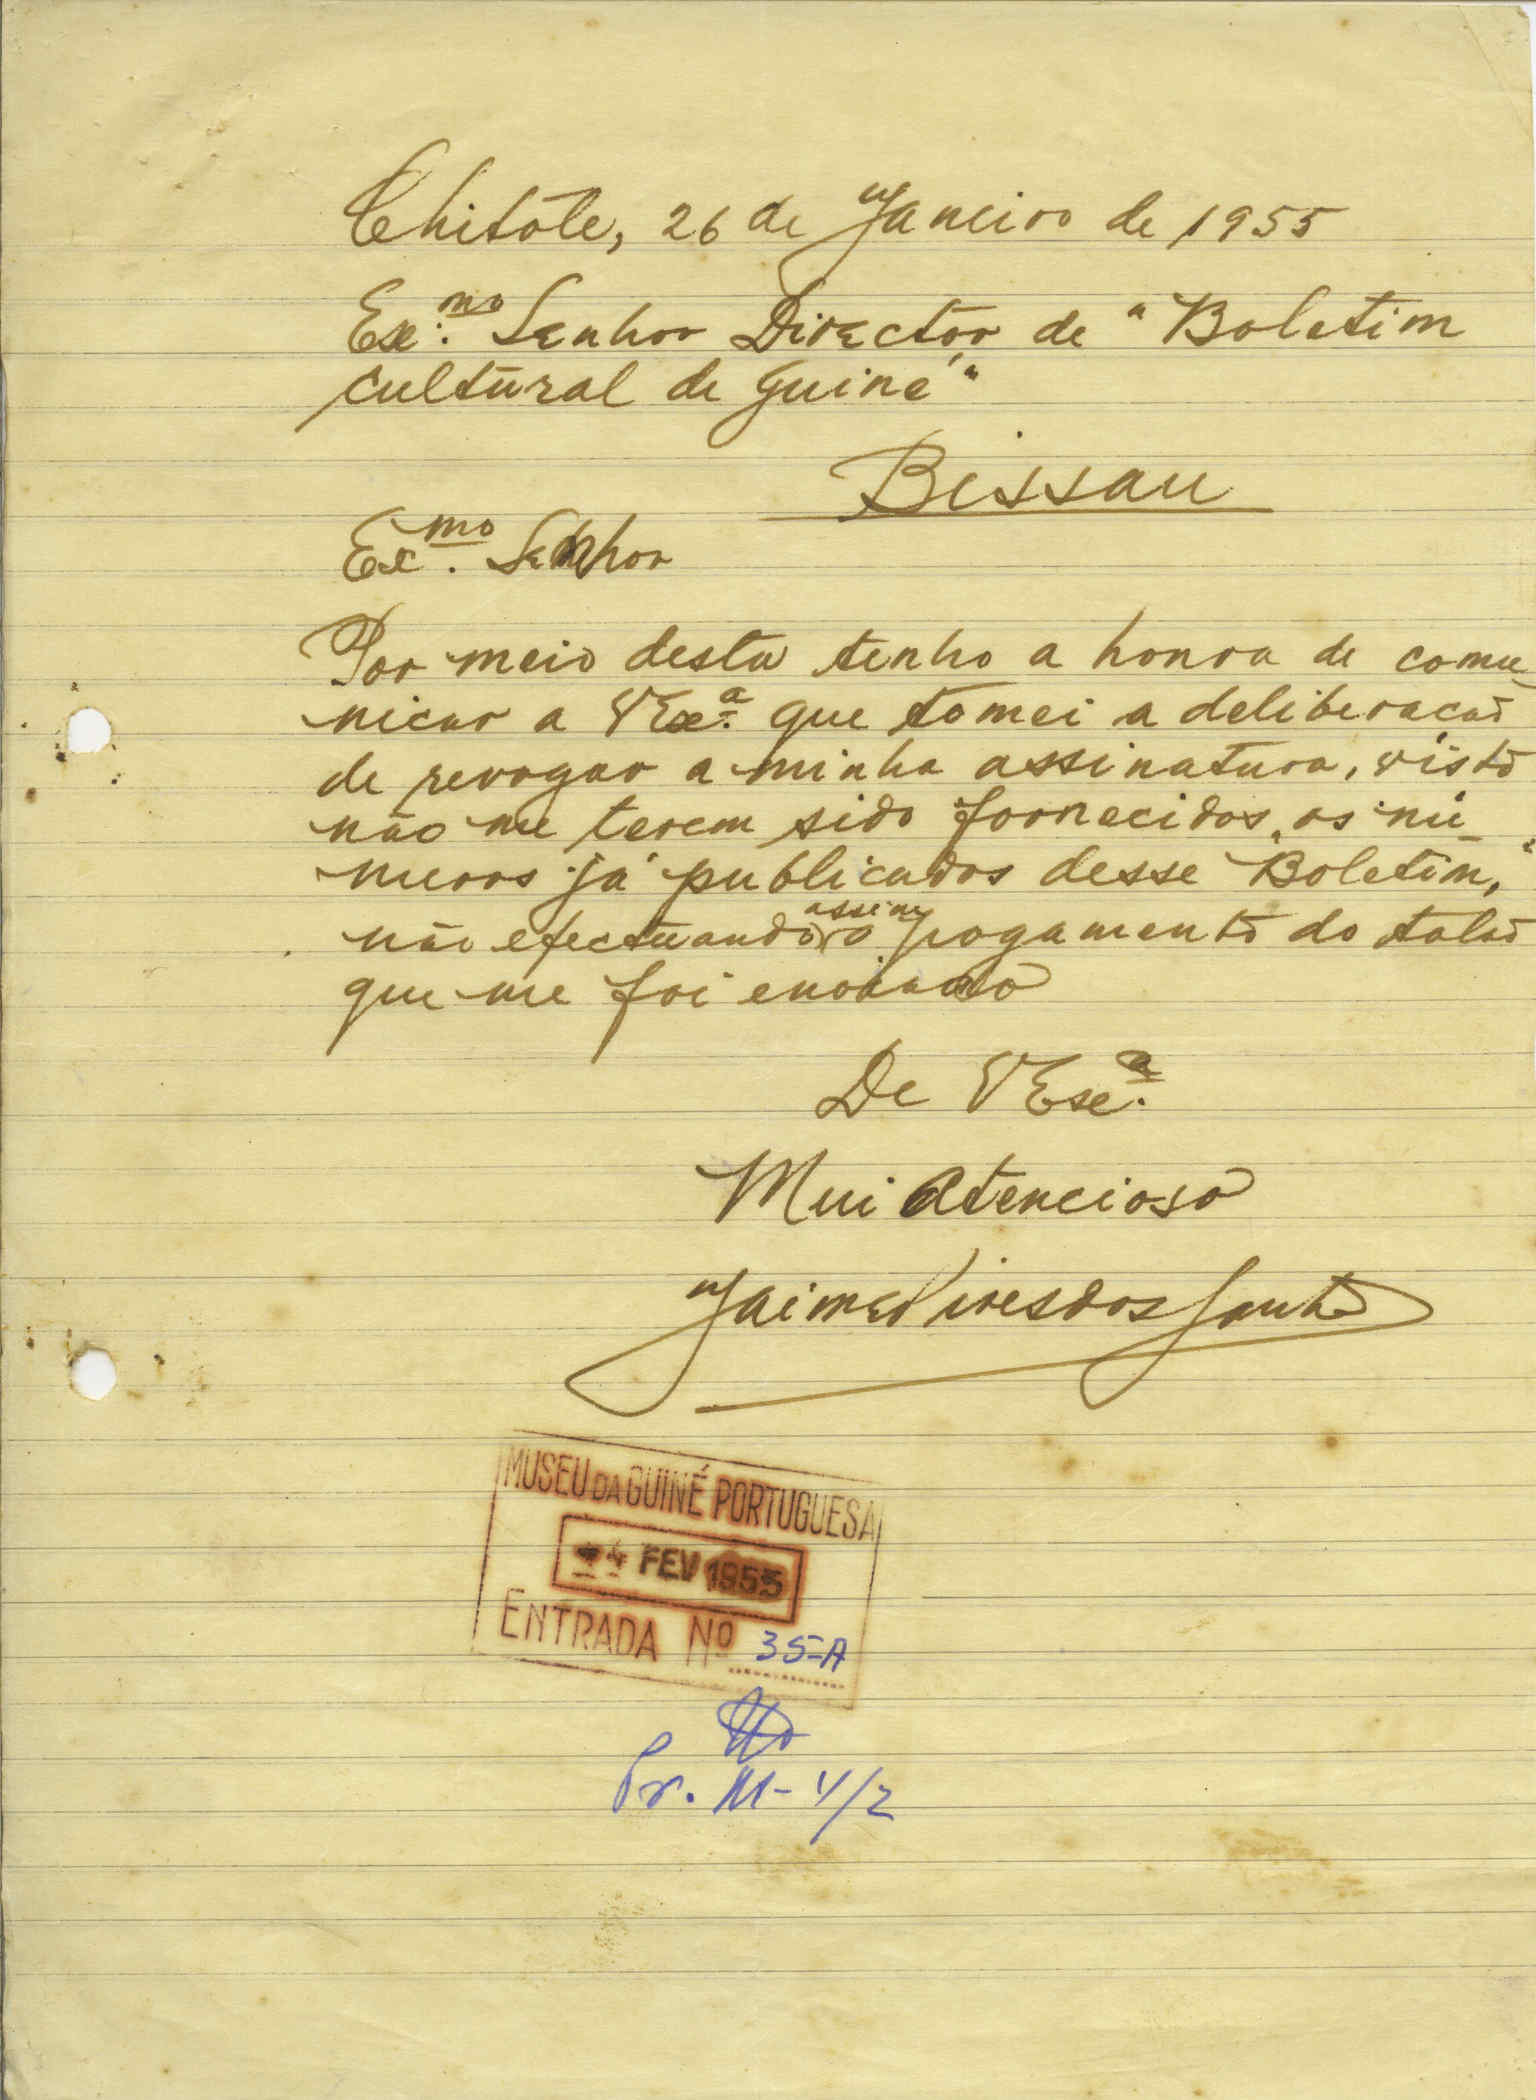 Chitole, 26 de Janeiro de 1955
Ex.mo Senhor Director de "Boletim
cultural de Guiné"
Bissau
Ex.mo Senhor
Por meio desta tenho a honra de comu-
nicar a VExª. que tomei a deliberacão
de revogar a minha assinatura, visto
não me terem sido fornecidos, os nú-
meros já publicados desse "Boletim,"
não efectuando assim o pagamento do talão
que me foi enviado
De VExª.
Mui Atencioso
Jaime Pires dos Santos
MUSEU DA GUINÉ PORTUGUESA
FEV 1955
ENTRADA Nº 35-A
Pr. M-4/2